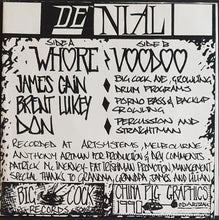 DENIAL
SIDE A
WHORE
SIDE B
VOODOO
JAMES CAIN
BRENT LUKEY
DON
BIG COCK AVE, GROWLING
DRUM PROGRAMS
PORNO BASS & BACKUP
GROWLING
PERCUSSION AND
STRAIGHTMAN
RECORDED AT ARTSYSTEMS, MELBOURNE
ANTHONY ARTMAN FOR PRODUCTION & DRY COMMENTS
PATRICK M, FAT FISHMAN PROMOTION MANAGEMENT
SPECIAL THANKS TO GRANDMA, GRANDPA, JAMES, AND LILIAN
BIG COCK
RECORDS
CHINA PIG GRAPHICS
1990